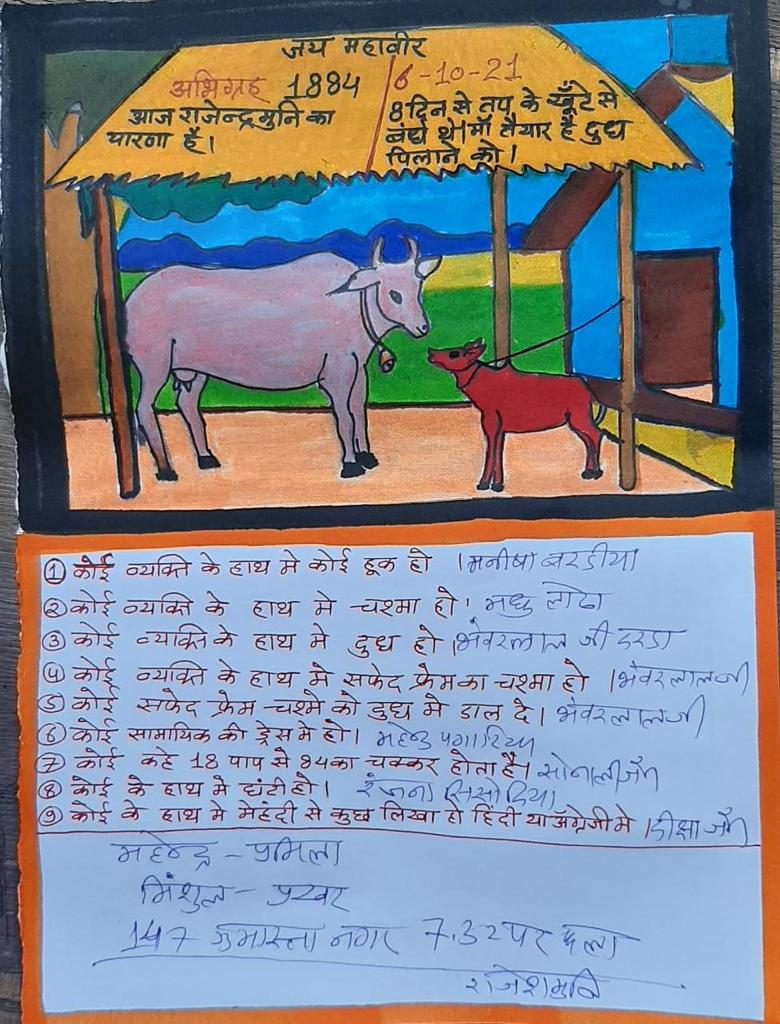 जय महावीर
अभिग्रह 1884
6-10-21
आज राजेन्द्रमुनि का
पारना है।
8 दिन से तप के खूँटे से
बंधे थे। माँ तैयार है दुध
पिलाने को।
① कोई व्यक्ति के हाथ मे कोई हूक हो । मनीषा बरडीया
② कोई व्यक्ति के हाथ मे चश्मा हो। मधु लोढा
③ कोई व्यक्ति के हाथ मे दुध हो। भंवरलाल जी
④ कोई व्यक्ति के हाथ मे सफेद फ्रेम का चश्मा हो । भंवरलालजी
⑤ कोई सफेद फ्रेम चश्मे को दुध मे डाल दे। भंवरलालजी
⑥ कोई सामायिक की ड्रेस मे हो। महेन्द्र पगारिया
⑦ कोई कहे 18 पाप से 84 का चक्कर होता है। सोनाली जैन
⑧ कोई के हाथ मे घंटी हो। रंजना सिसोदिया
⑨ कोई के हाथ मे मेहंदी से कुछ लिखा हो हिंदी या अंग्रेजी मे । दीक्षा जैन
महेन्द्र - प्रमिला
मिंशुल - प्रखर
147 गुमास्ता नगर 7.32 पर फला
राजेशमुनि